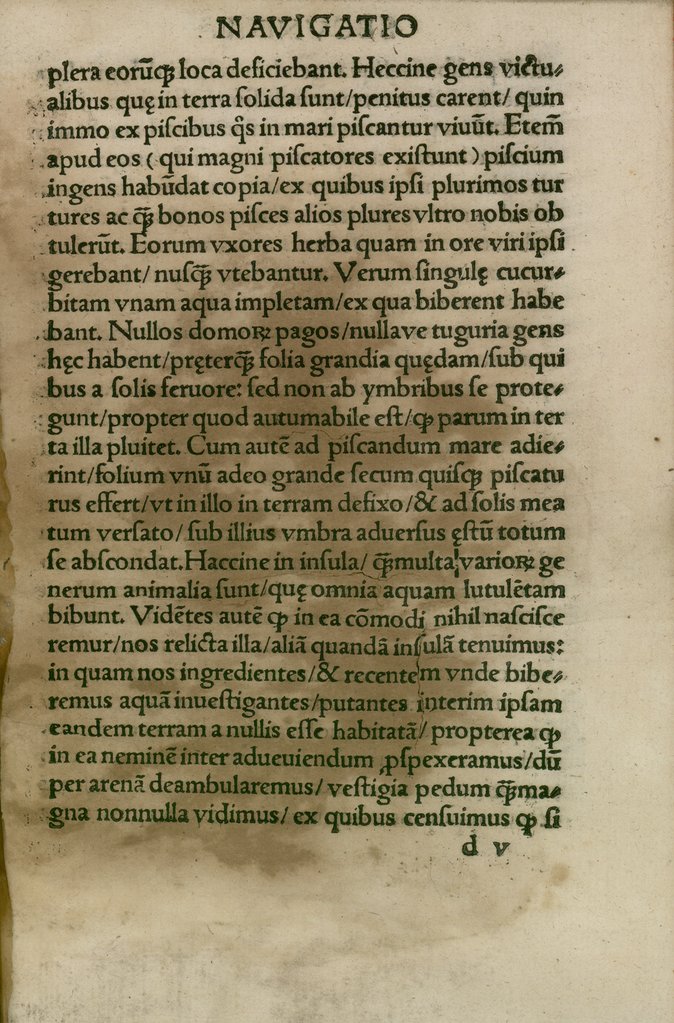 NAVIGATIO
plera eorūꝙ loca deficiebant. Heccine gens victu⸗
alibus quę in terra ſolida ſunt/penitus carent/ quin
immo ex piſcibus q̄s in mari piſcantur viuūt. Etem̄
apud eos ( qui magni piſcatores exiſtunt ) piſcium
ingens habūdat copia/ex quibus ipſi plurimos tur
tures ac ꝙ̄ bonos piſces alios plures vltro nobis ob
tulerūt. Eorum vxores herba quam in ore viri ipſi
gerebant/ nuſꝙ̄ vtebantur. Verum ſingulę cucur⸗
bitam vnam aqua impletam/ex qua biberent habe
bant. Nullos domoꝝ pagos/nullave tuguria gens
hęc habent/pręterꝙ̄ folia grandia quędam/ſub qui
bus a ſolis feruore: ſed non ab ymbribus ſe prote⸗
gunt/propter quod autumabile eſt/ꝙ parum in ter
ta illa pluitet. Cum autē ad piſcandum mare adie⸗
rint/folium vnū adeo grande ſecum quiſꝙ piſcatu
rus effert/vt in illo in terram defixo/& ad ſolis mea
tum verſato/ ſub illius vmbra aduerſus ęſtū totum
ſe abſcondat.Haccine in inſula/ ꝙ̄multa varioꝝ ge
nerum animalia ſunt/quę omnia aquam lutulētam
bibunt. Vidētes autē ꝙ in ea cōmodi nihil naſciſce
remur/nos relicta illa/aliā quandā inſulā tenuimus:
in quam nos ingredientes/& recentem vnde bibe⸗
remus aquā inueſtigantes/putantes interim ipſam
eandem terram a nullis eſſe habitatā/ propterea ꝙ
in ea neminē inter adueuiendum ꝓſpexeramus/dū
per arenā deambularemus/ veſtigia pedum ꝙ̄ma⸗
gna nonnulla vidimus/ ex quibus cenſuimus ꝙ ſi
d v